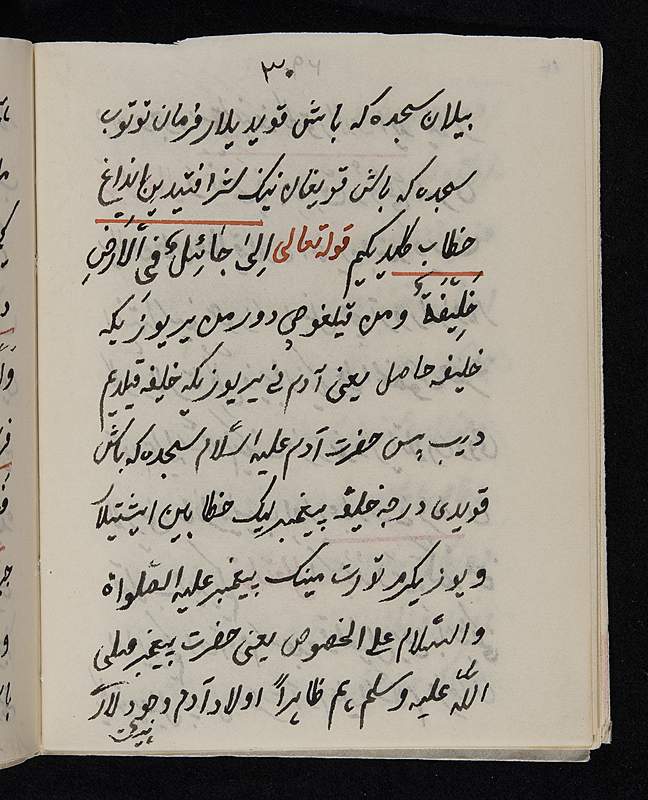 ۳۰
بیلان سجده که باش قویدیلار فرمان توتوب
سجده که باش قویغان نینک شرافتیدین انداغ
خطاب کلدیکیم قوله تعالی اِلیٰ جَائِلٌ فِی الْاَرْضِ
خَلِیْفَةً ومن قیلغوجی دورمن یر یوزیکه
خلیفه حاصل یعنی آدم نی یر یوزیکه خلیفه قیلدیم
دیب پس حضرت آدم علیه السّلام سجده که باش
قویدی درجهٔ خلیفه پیغمبرلیک خطابین ایشیتیلا
ویوز یکرمه تورت مینک پیغمبر علیه الصّلواة
والسّلام علی الخصوص یعنی حضرت پیغمبر صلی
اللّه علیه وسلم هم ظاهراً اولاد آدم وجودلار